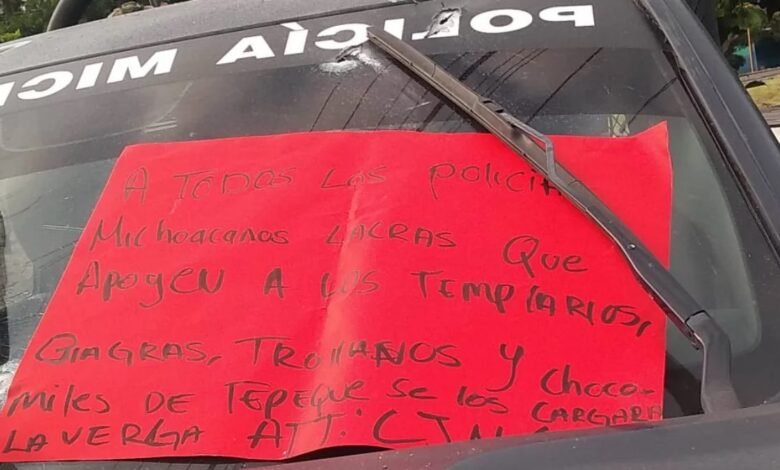 POLICÍA MICH
A TODOS LOS POLICIA
Michoacanos LACRAS Que
Apoyen A LOS TEMPLARIOS,
GIAGRAS, TROYANOS Y Choco-
miles DE TEPEQUE se los CARGARA
LA VERGA ATT: CJN